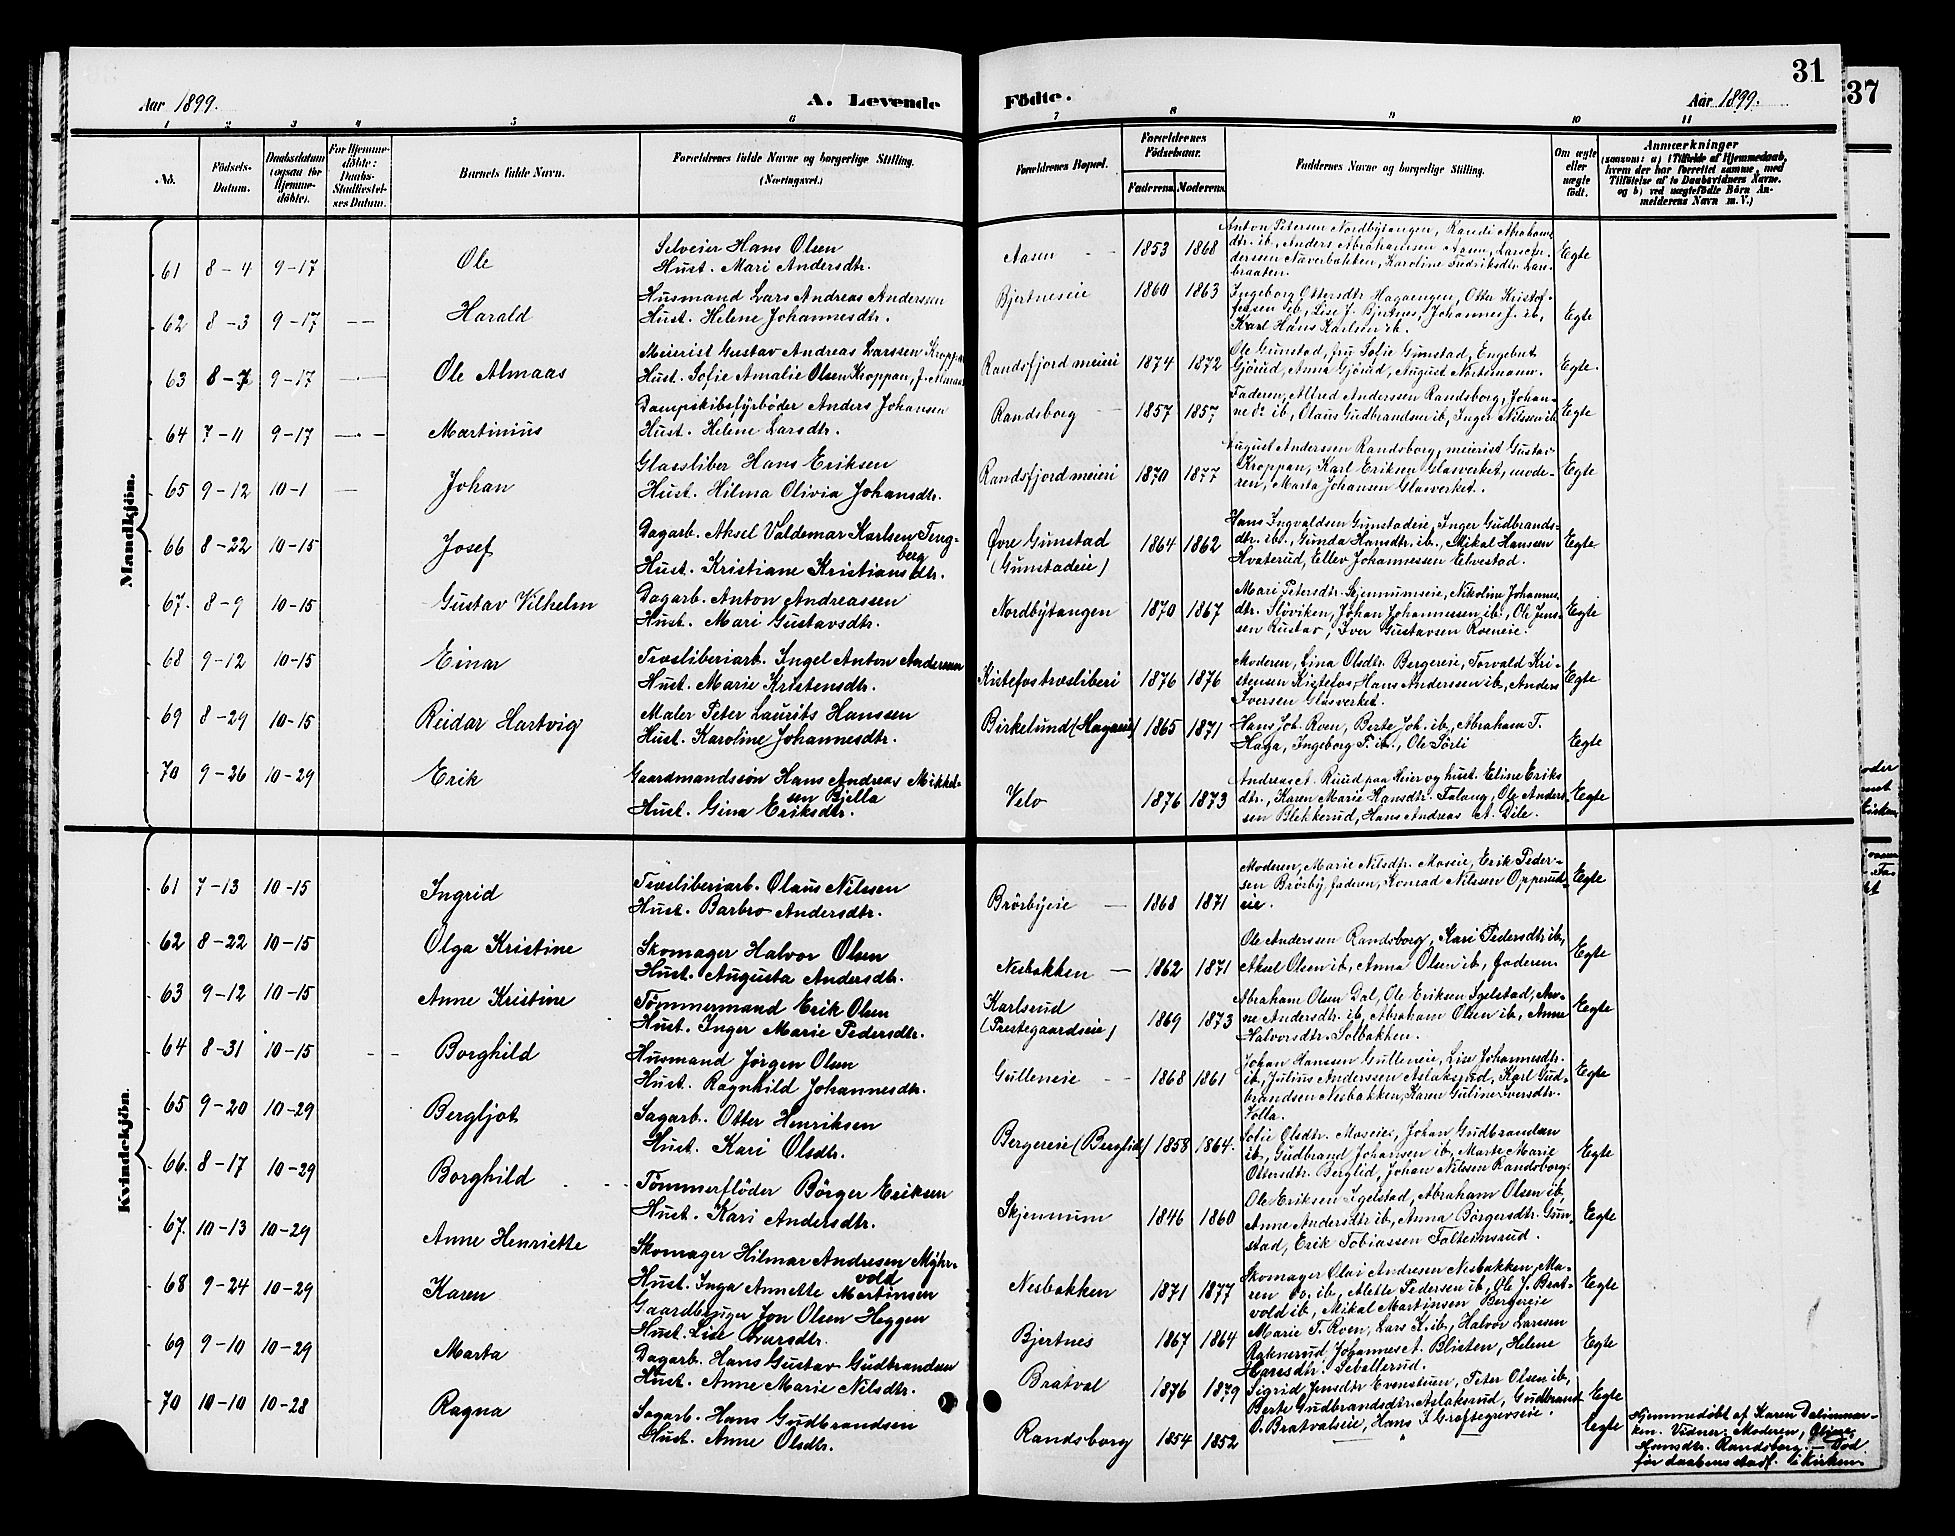 31
37
Aar 1899.
A. Levende
Födte.
Aar 1899.
1 2 3 4 5 6 7 8 9 10 11
No.
Födsels-
Datum.
Daabsdatum
(ogsaa for
Hjemme-
döbte).
For Hjemme-
döbte:
Daabs-
Stadfæstel-
ses Datum.
Barnets fulde Navn.
Forældrenes fulde Navne og borgerlige Stilling.
(Næringsvei.)
Forældrenes Bopæl.
Forældrenes
Födselsaar.
Faderens. Moderens.
Faddernes Navne og borgerlige Stilling.
Om ægte
eller
uægte
födt.
Anmærkninger
(saasom: a) i Tilfælde af Hjemmedaab,
hvem der har forrettet samme, med
Tilföielse af to Daabsvidners Navne.
og b) ved uægtefödte Börn An-
melderens Navn m. V.)
Mandkjön.
61 8-4 9-17 Ole
Selveier Hans Olsen
Hust. Mari Andersdtr.
Aasen 1853 1868
Anton Petersen Nordbýtangen, Randi Abrahams
dtr. ib, Anders Abrahamsen Aasen, Lars Pe-
dersen Naverbakken, Karoline Fredriksdtr.
braaten.
Egte
62 8-3 9-17 Harald
Husmand Lars Andreas Anderssen
Hust. Helene Johannesdtr.
Bjertneseie 1860 1863
Ingeborg Ottersdtr Hagaengen, Otter Kristof-
fersen ib, Lise J. Bjertnes, Johannes J. ib,
Karl Hans Karlsen ib.
Egte
63 8-7 9-17 Ole Almaas
Meierist Gustav Andreas Larssen Kroppan
Hust. Sofie Amalie Olsen Kroppan, f. Almaas
Randsfjord meieri 1874 1872
Ole Gunstad, fru Sofie Gunstad, Engebret
Gjörud, Anna Gjörud, August Nortsmann.
Egte.
64 7-11 9-17 Martinius
Dampskibsfýrböder Anders Johansen
Hust. Helene Larsdtr.
Randsborg 1857 1857
Faderen, Alfred Anderssen Randsborg, Johan-
ne do ib, Olaus Gudbrandsen ib, Inger Nilsen ib
Egte
65 9-12 10-1 Johan
Glassliber Hans Eriksen
Hust. Hilma Olivia Johansdtr.
Randsfjord meieri 1870 1877
August Anderssen Randsborg, meierist Gustav
Kroppan, Karl Eriksen Glasverket, mode-
ren, Marta Johansen Glasverket.
Egte
66 8-22 10-15 Josef
Dagarb. Aksel Valdemar Karlsen Teng-
berg
Hust. Kristiane Kristiansdtr.
Øvre Gunstad
(Gunstadeie)
1864 1862
Hans Ingvaldsen Gunstadeie, Inger Gudbrands-
dtr. ib., Gunda Hansdtr. ib., Mikal Hansen
Hvaterud, Ellev Johannessen Elvestad.
Egte
67. 8-9 10-15 Gustav Vilhelm
Dagarb. Anton Andreassen
Hust. Mari Gustavsdtr.
Nordbýtangen 1870 1867
Mari Petersdtr. Skjennumseie, Nikoline Johannes
dtr. Sloviken, Johan Johannessen ib., Ole Jens-
sen Rustad, Iver Gustavsen Roeneie.
Egte
68 9-12 10-15 Einar
Træsliberiarb. Ingel Anton Andersen
Hust. Marie Kristensdtr.
Kistefos træsliberi 1876 1876
Moderen, Lina Olsdtr. Bergereie, Torvald Kri-
stensen Kistefos, Hans Anderssen ib., Anders
Iversen Glasverket.
Egte
69 8-29 10-15 Reidar Hartvig
Maler Peter Laurits Hanssen
Hust. Karoline Johannesdtr.
Birkelund (Hagaeie) 1865 1871
Hans Joh. Roen, Berte Joh. ib, Abraham T.
Haga, Ingeborg T. ib., Ole Sörli
Egte
70 9-26 10-29 Erik
Gaardmandssön Hans Andreas Mikkel-
sen Bjella
Hust. Gina Eriksdtr.
Velo 1876 1873
Andreas A. Ruud paa Heier og hust. Eline Eriks
dtr., Karen Marie Hansdtr. Falang, Ole Anders
sen Blekkerud, Hans Andreas A. Dile.
Egte
Kvindekjön.
61 7-13 10-15 Ingrid
Træsliberiarb. Olaus Nilssen
Hust. Barbro Andersdtr.
Brörbýeie 1868 1871
Moderen, Marie Nilsdtr. Moseie, Erik Peder-
sen Brörbý, faderen, Konrad Nilssen Opperud-
eie.
Egte
62 8-22 10-15 Olga Kristine
Skomager Halvor Olsen
Hust. Augusta Andersdtr.
Nesbakken 1862 1871
Ole Anderssen Randsborg, Kari Pedersdtr ib,
Aksel Olsen ib, Anna Olsen ib, faderen.
Egte
63 9-12 10-15 Anne Kristine
Tömmermand Erik Olsen
Hust. Inger Marie Pedersdtr.
Karlsrud
(Prestegaardseie)
1869 1873
Abraham Olsen Dal, Ole Eriksen Igelstad, An-
ne Andersdtr. ib, Abraham Olsen ib, Anne
Halvorsdtr. Solbakken.
Egte
64 8-31 10-15 Borghild
Husmand Jörgen Olsen
Hust. Ragnhild Johannesdtr.
Gulleneie 1868 1861
Johan Hanssen Gulleneie, Lise Johannesdtr.
ib, Julius Anderssen Aslaksrud, Karl Gud-
brandsen Nesbakken, Karen Guline Iversdtr.
Egte
65 9-20 10-29 Bergljot
Sagarb. Otter Henriksen
Hust. Kari Olsdtr.
Bergereie (Berglid) 1858 1864.
Sofie Olsdtr. Moseiei, Johan Gudbrandsen
ib, Gudbrand Johansen ib, Marte Marie
Ottersdtr. Berglid, Johan Nilsen Randsborg.
Egte
66. 8-17 10-29 Borghild
Tömmerflöder Börger Eriksen
Hust. Kari Andersdtr.
Skjennum 1846 1860
Ole Eriksen Igelstad, Abraham Olsen ib,
Anne Andersdtr ib, Anna Börgersdtr. Gun-
stad, Erik Tobiassen Falteinsrud.
Egte
67. 10-13 10-29 Anne Henriette
Skomager Hilmar Andresen Mýhr-
vold
Hust. Inga Annette Martinsen
Nesbakken 1871 1877
Skomager Olai Andresen Nesbakken, Ma-
ren do. ib, Alette Pedersen ib, Ole J. Brat-
vold ib, Mikal Martinsen Bergereie
Egte
68 9-24 10-29 Karen
Gaardbruger Jon Olsen Heggen
Hust. Lise Larsdtr.
Bjertnes 1867 1864
Marie T. Roen, Lars K. ib, Halvor Larssen
Raknerud, Johannes A. Blisten, Helene
Haresdtr.
Egte
69 9-10 10-29 Marta
Dagarb. Hans Gustav Gudbrandsen
Hust. Anne Marie Nilsdtr.
Bratval 1876 1879
Sigrid Jensdtr Evenstuen, Peter Olsen ib,
Berte Gudbrandsdtr. Aslaksrud, Gudbrand
O. Bratvalseie, Hans J. Groftegreveie.
Egte
70 10-10 10-28 Ragna
Sagarb. Hans Gudbrandsen
Hust. Anne Olsdtr.
Randsborg 1854 1852
Egte
Hjemmedöbt af Karen Dalinmar-
ken. Vidner: Moderen,
Hansdtr. Randsborg. — Död
för daabens stadf. i kirken.